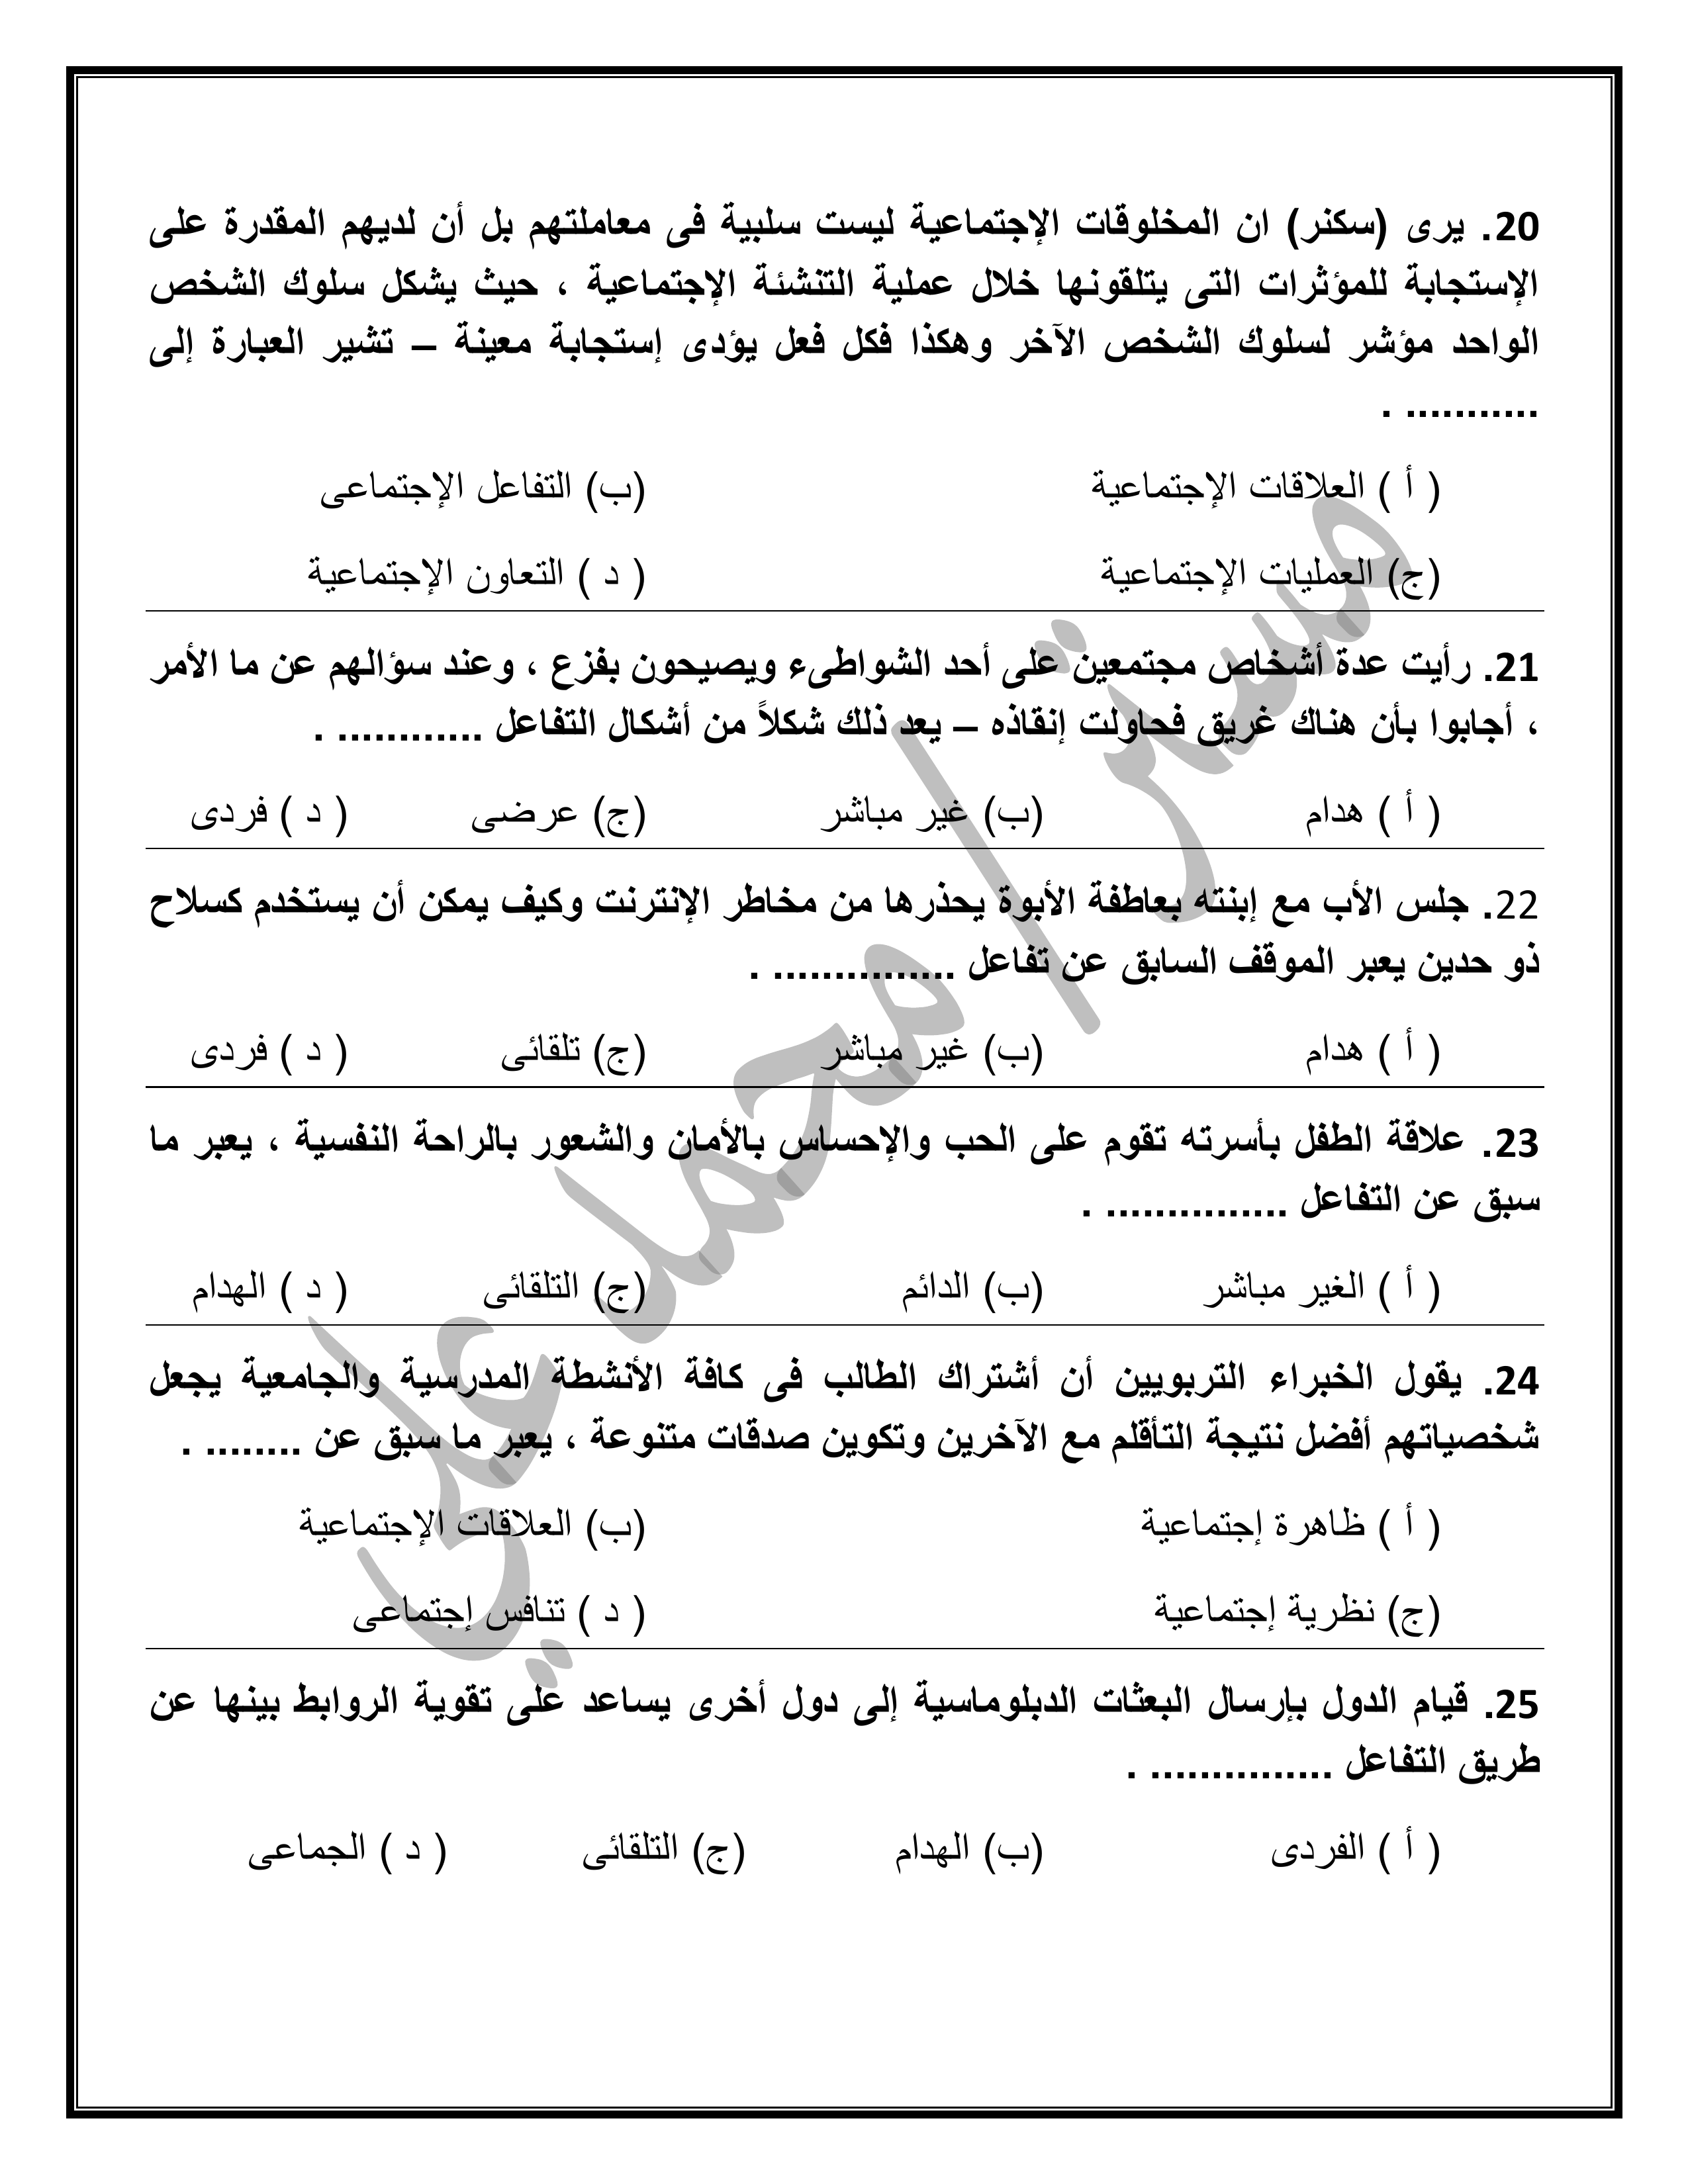 20. يرى (سكنر) ان المخلوقات الإجتماعية ليست سلبية فى معاملتهم بل أن لديهم المقدرة على
الإستجابة للمؤثرات التى يتلقونها خلال عملية التنشئة الإجتماعية ، حيث يشكل سلوك الشخص
الواحد مؤشر لسلوك الشخص الآخر وهكذا فكل فعل يؤدى إستجابة معينة – تشير العبارة إلى
........... .
( أ ) العلاقات الإجتماعية (ب) التفاعل الإجتماعى
(ج) العمليات الإجتماعية ( د ) التعاون الإجتماعية
21. رأيت عدة أشخاص مجتمعين على أحد الشواطىء ويصيحون بفزع ، وعند سؤالهم عن ما الأمر
، أجابوا بأن هناك غريق فحاولت إنقاذه – يعد ذلك شكلاً من أشكال التفاعل ............ .
( أ ) هدام (ب) غير مباشر (ج) عرضى ( د ) فردى
22. جلس الأب مع إبنته بعاطفة الأبوة يحذرها من مخاطر الإنترنت وكيف يمكن أن يستخدم كسلاح
ذو حدين يعبر الموقف السابق عن تفاعل ............... .
( أ ) هدام (ب) غير مباشر (ج) تلقائى ( د ) فردى
23. علاقة الطفل بأسرته تقوم على الحب والإحساس بالأمان والشعور بالراحة النفسية ، يعبر ما
سبق عن التفاعل ............... .
( أ ) الغير مباشر (ب) الدائم (ج) التلقائى ( د ) الهدام
24. يقول الخبراء التربويين أن أشتراك الطالب فى كافة الأنشطة المدرسية والجامعية يجعل
شخصياتهم أفضل نتيجة التأقلم مع الآخرين وتكوين صدقات متنوعة ، يعبر ما سبق عن ........ .
( أ ) ظاهرة إجتماعية (ب) العلاقات الإجتماعية
(ج) نظرية إجتماعية ( د ) تنافس إجتماعى
25. قيام الدول بإرسال البعثات الدبلوماسية إلى دول أخرى يساعد على تقوية الروابط بينها عن
طريق التفاعل ............... .
( أ ) الفردى (ب) الهدام (ج) التلقائى ( د ) الجماعى
مستر/ محمد علي